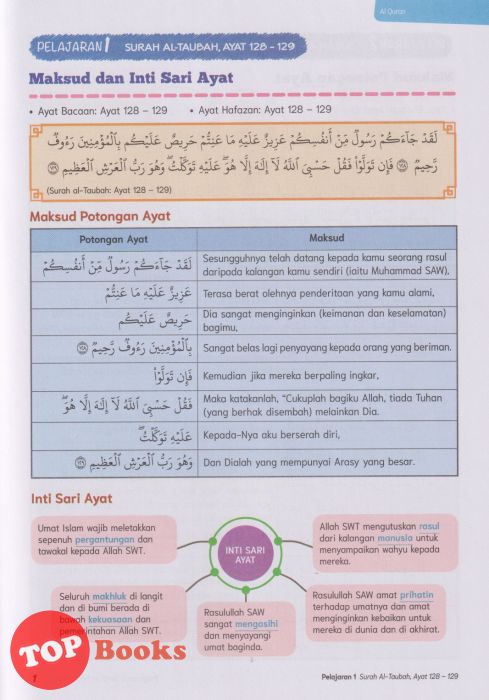 Al Quran
PELAJARAN 1 SURAH AL-TAUBAH, AYAT 128 – 129
Maksud dan Inti Sari Ayat
• Ayat Bacaan: Ayat 128 – 129 • Ayat Hafazan: Ayat 128 – 129
لَقَدْ جَاءَكُمْ رَسُولٌ مِّنْ أَنفُسِكُمْ عَزِيزٌ عَلَيْهِ مَا عَنِتُّمْ حَرِيصٌ عَلَيْكُم بِالْمُؤْمِنِينَ رَءُوفٌ
رَّحِيمٌ ١٢٨ فَإِن تَوَلَّوْا فَقُلْ حَسْبِيَ اللَّهُ لَا إِلَٰهَ إِلَّا هُوَ ۖ عَلَيْهِ تَوَكَّلْتُ ۖ وَهُوَ رَبُّ الْعَرْشِ الْعَظِيمِ ١٢٩
(Surah al-Taubah: Ayat 128 – 129)
Maksud Potongan Ayat
Potongan Ayat Maksud
لَقَدْ جَاءَكُمْ رَسُولٌ مِّنْ أَنفُسِكُمْ
Sesungguhnya telah datang kepada kamu seorang rasul
daripada kalangan kamu sendiri (iaitu Muhammad SAW),
عَزِيزٌ عَلَيْهِ مَا عَنِتُّمْ
Terasa berat olehnya penderitaan yang kamu alami,
حَرِيصٌ عَلَيْكُم
Dia sangat menginginkan (keimanan dan keselamatan)
bagimu,
بِالْمُؤْمِنِينَ رَءُوفٌ رَّحِيمٌ ١٢٨
Sangat belas lagi penyayang kepada orang yang beriman.
فَإِن تَوَلَّوْا
Kemudian jika mereka berpaling ingkar,
فَقُلْ حَسْبِيَ اللَّهُ لَا إِلَٰهَ إِلَّا هُوَ ۖ
Maka katakanlah, "Cukuplah bagiku Allah, tiada Tuhan
(yang berhak disembah) melainkan Dia.
عَلَيْهِ تَوَكَّلْتُ ۖ
Kepada-Nya aku berserah diri,
وَهُوَ رَبُّ الْعَرْشِ الْعَظِيمِ ١٢٩
Dan Dialah yang mempunyai Arasy yang besar.
Inti Sari Ayat
Umat Islam wajib meletakkan
sepenuh pergantungan dan
tawakal kepada Allah SWT.
INTI SARI
AYAT
Allah SWT mengutuskan rasul
dari kalangan manusia untuk
menyampaikan wahyu kepada
mereka.
Seluruh makhluk di langit
dan di bumi berada di
bawah kekuasaan dan
pemerintahan Allah SWT.
Rasulullah SAW
sangat mengasihi
dan menyayangi
umat baginda.
Rasulullah SAW amat prihatin
terhadap umatnya dan amat
menginginkan kebaikan untuk
mereka di dunia dan di akhirat.
TOP Books
1
Pelajaran 1 Surah Al-Taubah, Ayat 128 – 129